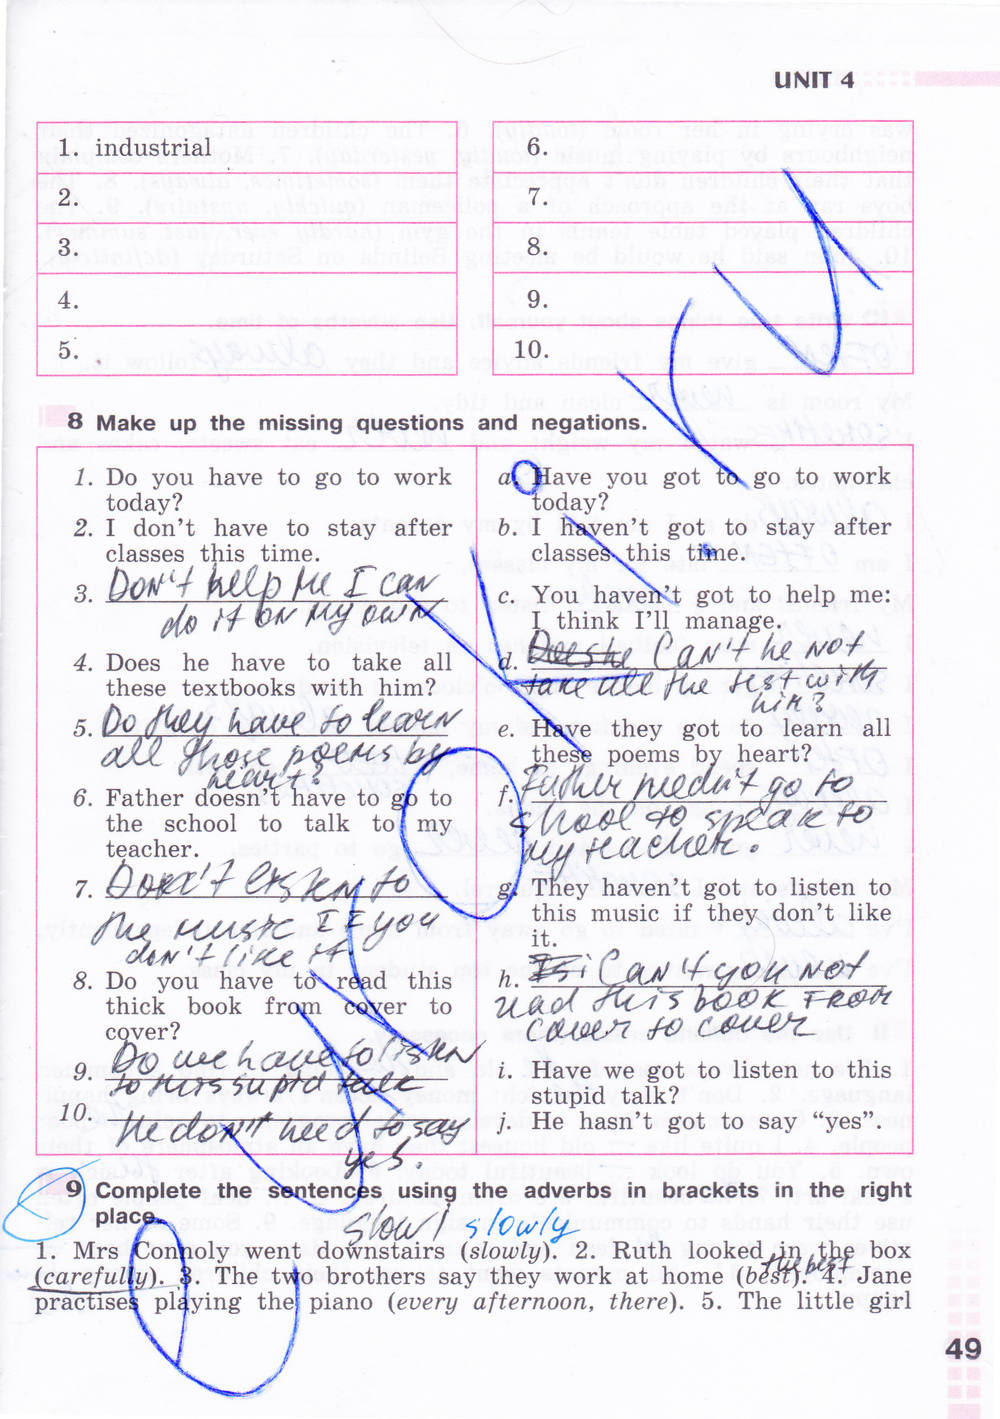 UNIT 4
1. industrial
2.
3.
4.
5.
6.
7.
8.
9.
10.
8 Make up the missing questions and negations.
1. Do you have to go to work
today?
2. I don't have to stay after
classes this time.
3. Don't help me I can
do it on my own
4. Does he have to take all
these textbooks with him?
5. Do they have to learn
all those poems by
heart?
6. Father doesn't have to go to
the school to talk to my
teacher.
7. Don't listen to
the music If you
don't like it
8. Do you have to read this
thick book from cover to
cover?
9. Do we have to listen
to this stupid talk
10.
He don't need to say
yes.
a. Have you got to go to work
today?
b. I haven't got to stay after
classes this time.
c. You haven't got to help me:
I think I'll manage.
d. Can't he not
take all the test with
him?
e. Have they got to learn all
these poems by heart?
f. Father needn't go to
school to speak to
my teacher.
g. They haven't got to listen to
this music if they don't like
it.
h. Can't you not
read this book From
cover to cover
i. Have we got to listen to this
stupid talk?
j. He hasn't got to say "yes".
9 Complete the sentences using the adverbs in brackets in the right
place.
slowl slowly
1. Mrs Connoly went downstairs (slowly). 2. Ruth looked in the box
the best
(carefully). 3. The two brothers say they work at home (best). 4. Jane
practises playing the piano (every afternoon, there). 5. The little girl
49